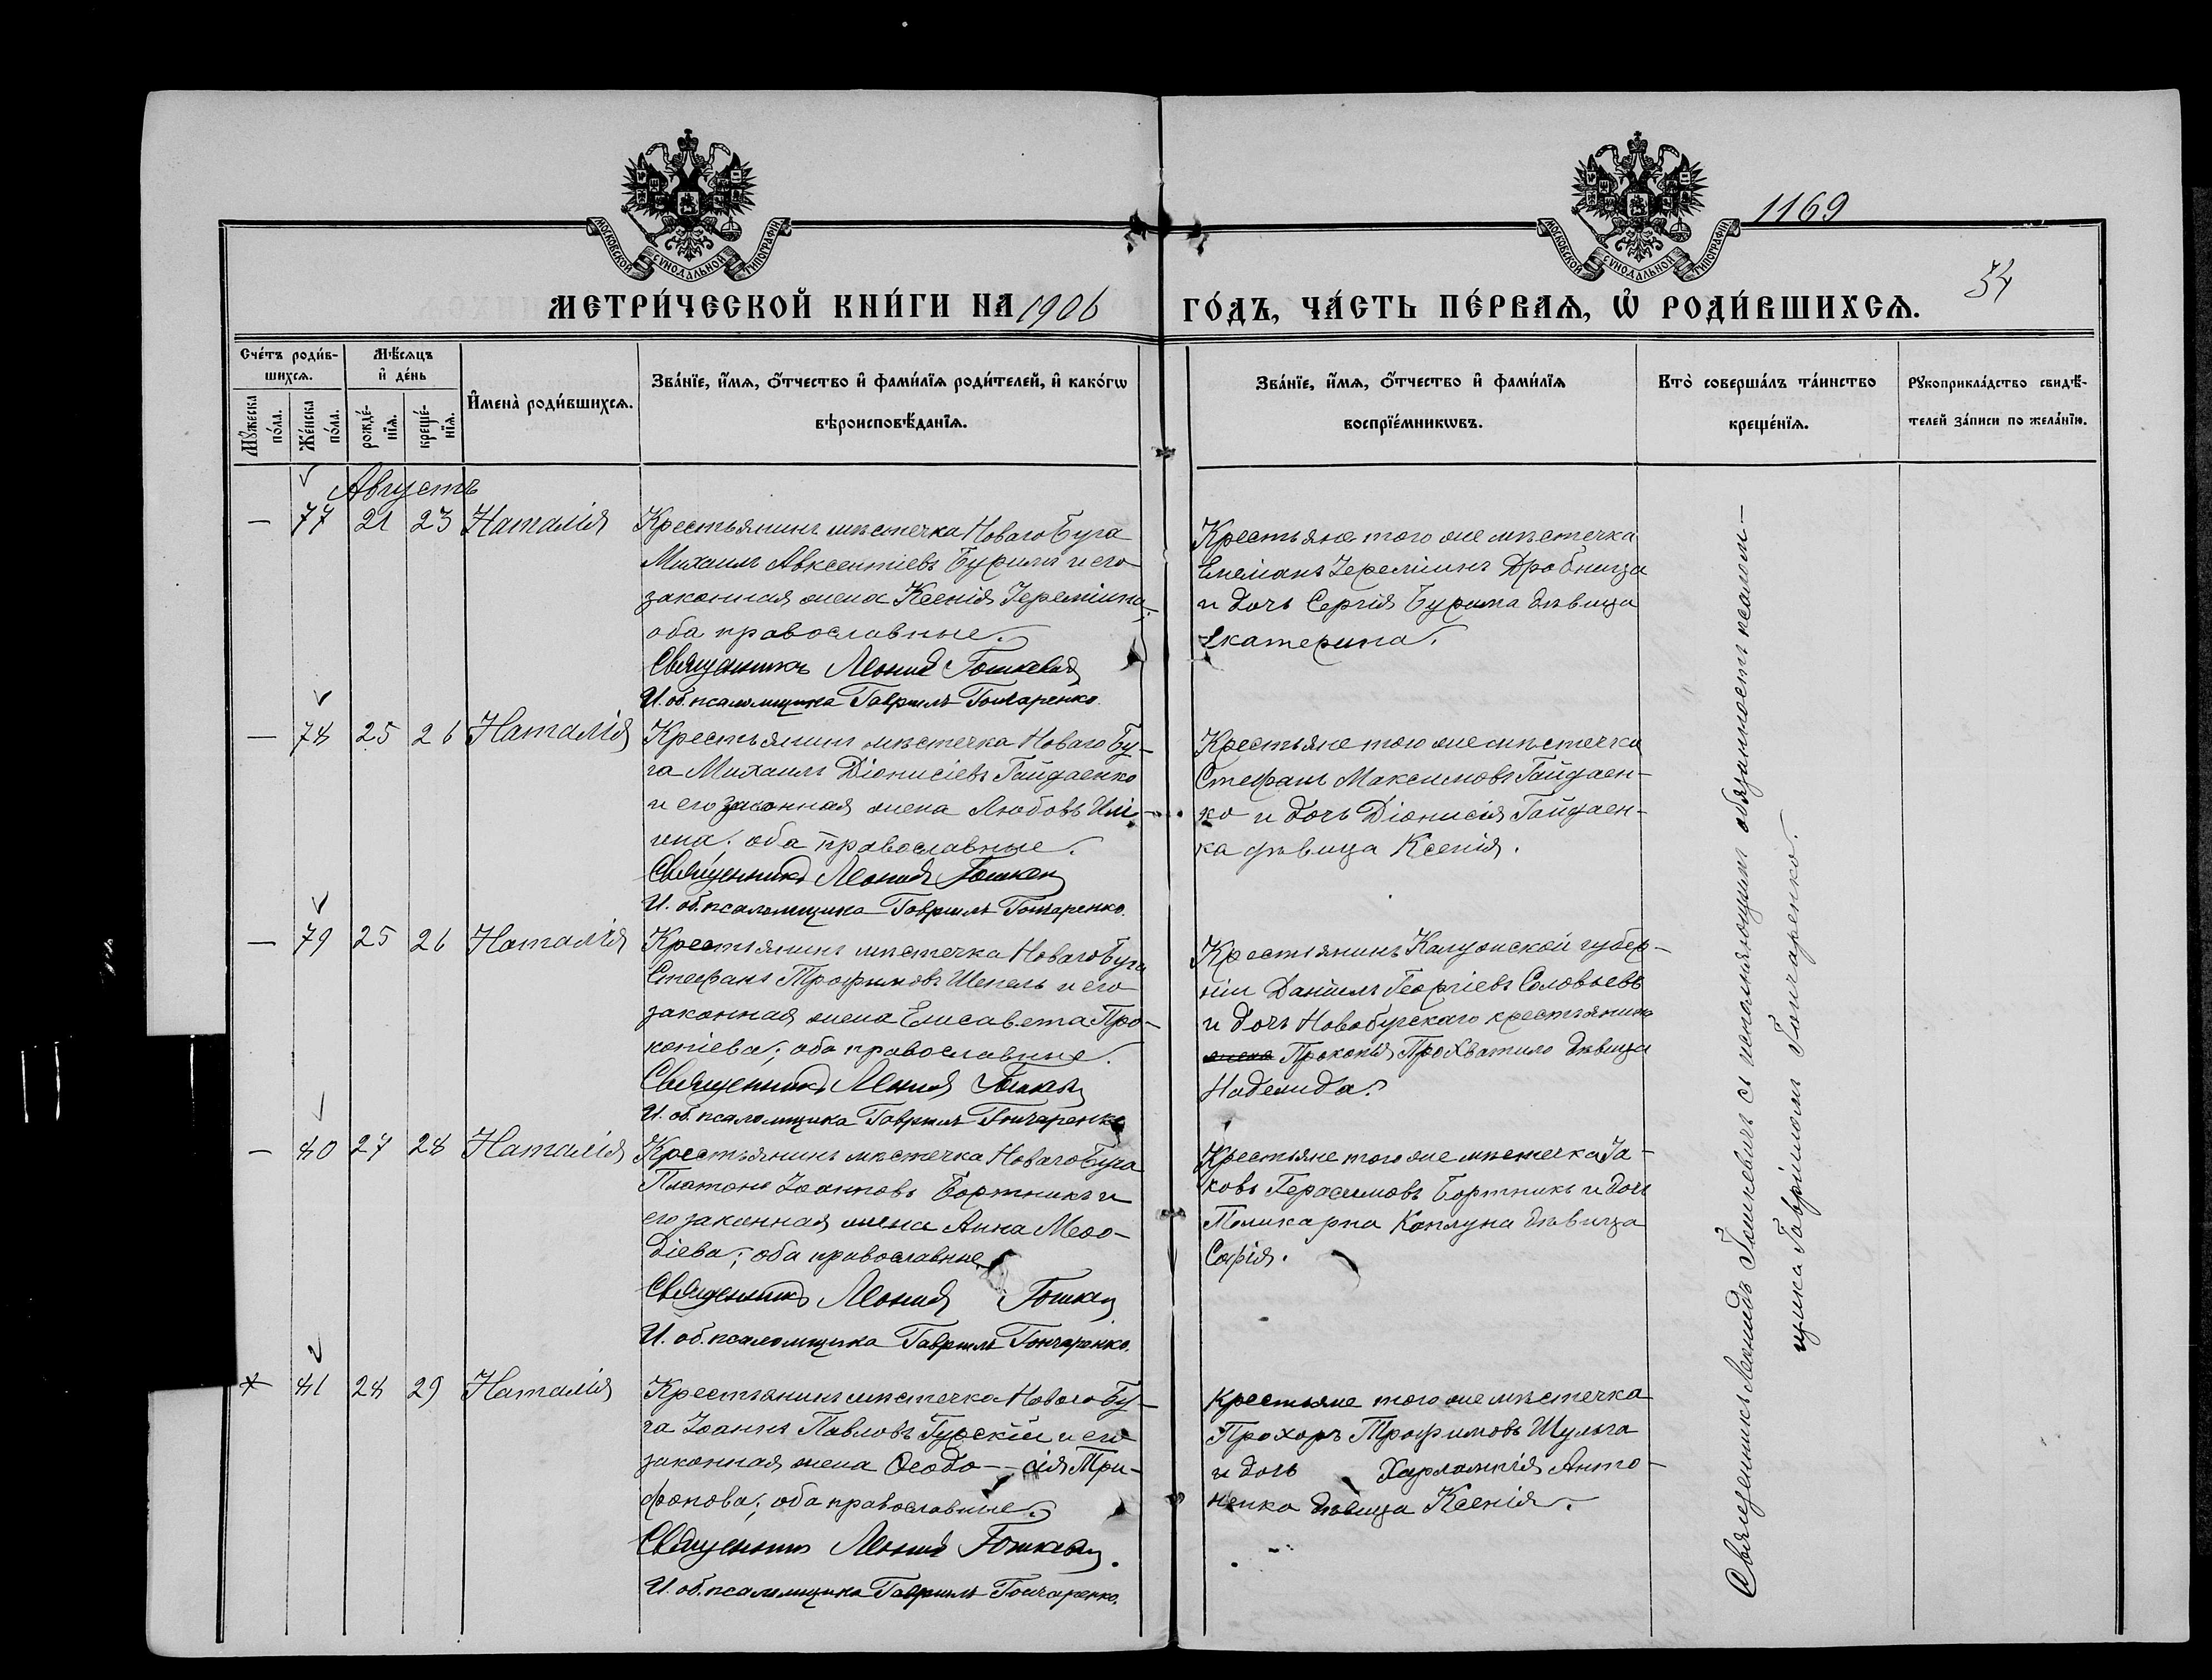 1169
34
МОСКОВСКОЙ СѴНОДАЛЬНОЙ ТИПОГРАФІИ
МОСКОВСКОЙ СѴНОДАЛЬНОЙ ТИПОГРАФІИ
МЕТРИ́ЧЕСКОЙ КНИ́ГИ НА 1906 ГО́ДЪ, ЧА́СТЬ ПЕ́РВАѦ, Ѡ҆ РОДИ́ВШИХСѦ.
Сче́тъ роди́в-
шихсѧ.
Мꙋ́жеска
по́ла.
Же́нска
по́ла.
Мѣ́сѧцъ
и҆ де́нь
рожде́-
нїѧ.
креще́-
нїѧ.
И҆мена̀ роди́вшихсѧ.
Зва́нїе, и҆́мѧ, ѻ҆́тчество и҆ фами́лїѧ роди́телей, и҆ како́гѡ
вѣроисповѣ́данїѧ.
Зва́нїе, и҆́мѧ, ѻ҆́тчество и҆ фами́лїѧ
воспрїе́мникѡвъ.
Кто̀ соверша́лъ та́инство
креще́нїѧ.
Рꙋкоприкла́дство свидѣ́-
телей за́писи по жела́нїю.
Августъ
— 77 21 23 Наталія
Крестьянинъ мѣстечка Новаго Буга
Михаилъ Авксентіевъ Буримъ и его
законная жена Ксенія Іереміина,
оба православные.
Священникъ Леонид Гошкевич
И. об. псаломщика Гавриилъ Гончаренко.
Крестьяне того же мѣстечка
Емеліанъ Іереміинъ Дробница
и дочь Сергія Бурима дѣвица
Екатерина.
— 78 25 26 Наталія
Крестьянинъ мѣстечка Новаго Бу-
га Михаилъ Діонисіевъ Гайдаенко
и его законная жена Любовь Илі-
ина; оба православные.
Священникъ Леонид
И. об. псаломщика Гавриилъ Гончаренко.
Крестьяне того же мѣстечка
Стефанъ Максимовъ Гайдаен-
ко и дочь Діонисія Гайдаен-
ка дѣвица Ксенія.
— 79 25 26 Наталія
Крестьянинъ мѣстечка Новаго Буга
Стефанъ Трофимовъ Шепель и его
законная жена Елисавета Про-
копіева; оба православные.
Священникъ Леонид
И. об. псаломщика Гавриилъ Гончаренко
Крестьянинъ Калужской губер-
ніи Даніилъ Георгіевъ Соловьевъ
и дочь Новобугскаго крестьянина
жена Прокопія Прохватило дѣвица
Надежда.
— 80 27 28 Наталія
Крестьянинъ мѣстечка Новаго Буга
Платонъ Іоанновъ Бортникъ и
его законная жена Анна Меѳо-
діева; оба православные
Священникъ Леонид
И. об. псаломщика Гавриилъ Гончаренко.
Крестьяне того же мѣстечка Іа-
ковъ Герасимовъ Бортникъ и дочь
Поликарпа Каплуна дѣвица
Софія.
81 28 29 Наталія
Крестьянинъ мѣстечка Новаго Бу-
га Іоаннъ Павловъ Гурскій и его
законная жена Ѳеодо--сія Три-
фонова; оба православные.
Священникъ Леонид
И. об. псаломщика Гавриилъ Гончаренко.
Крестьяне того же мѣстечка
Прохоръ Трофимовъ Шульга
и дочь Харлампія Анто-
ненка дѣвица Ксенія.
Священникъ Леонидъ Гошкевичъ съ исполняющимъ обязанность псалом-
щика Гавріиломъ Гончаренко.